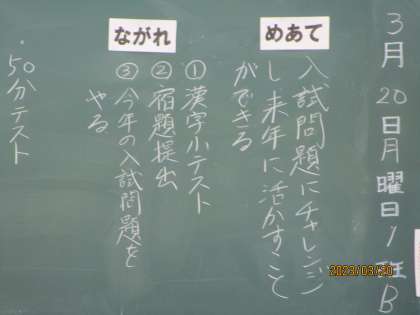 3月20日月曜日1班B
めあて
入試問題にチャレンジ
し来年に活かすこと
ができる
ながれ
①漢字小テスト
②宿題提出
③今年の入試問題を
やる
・50分テスト
2023/03/20